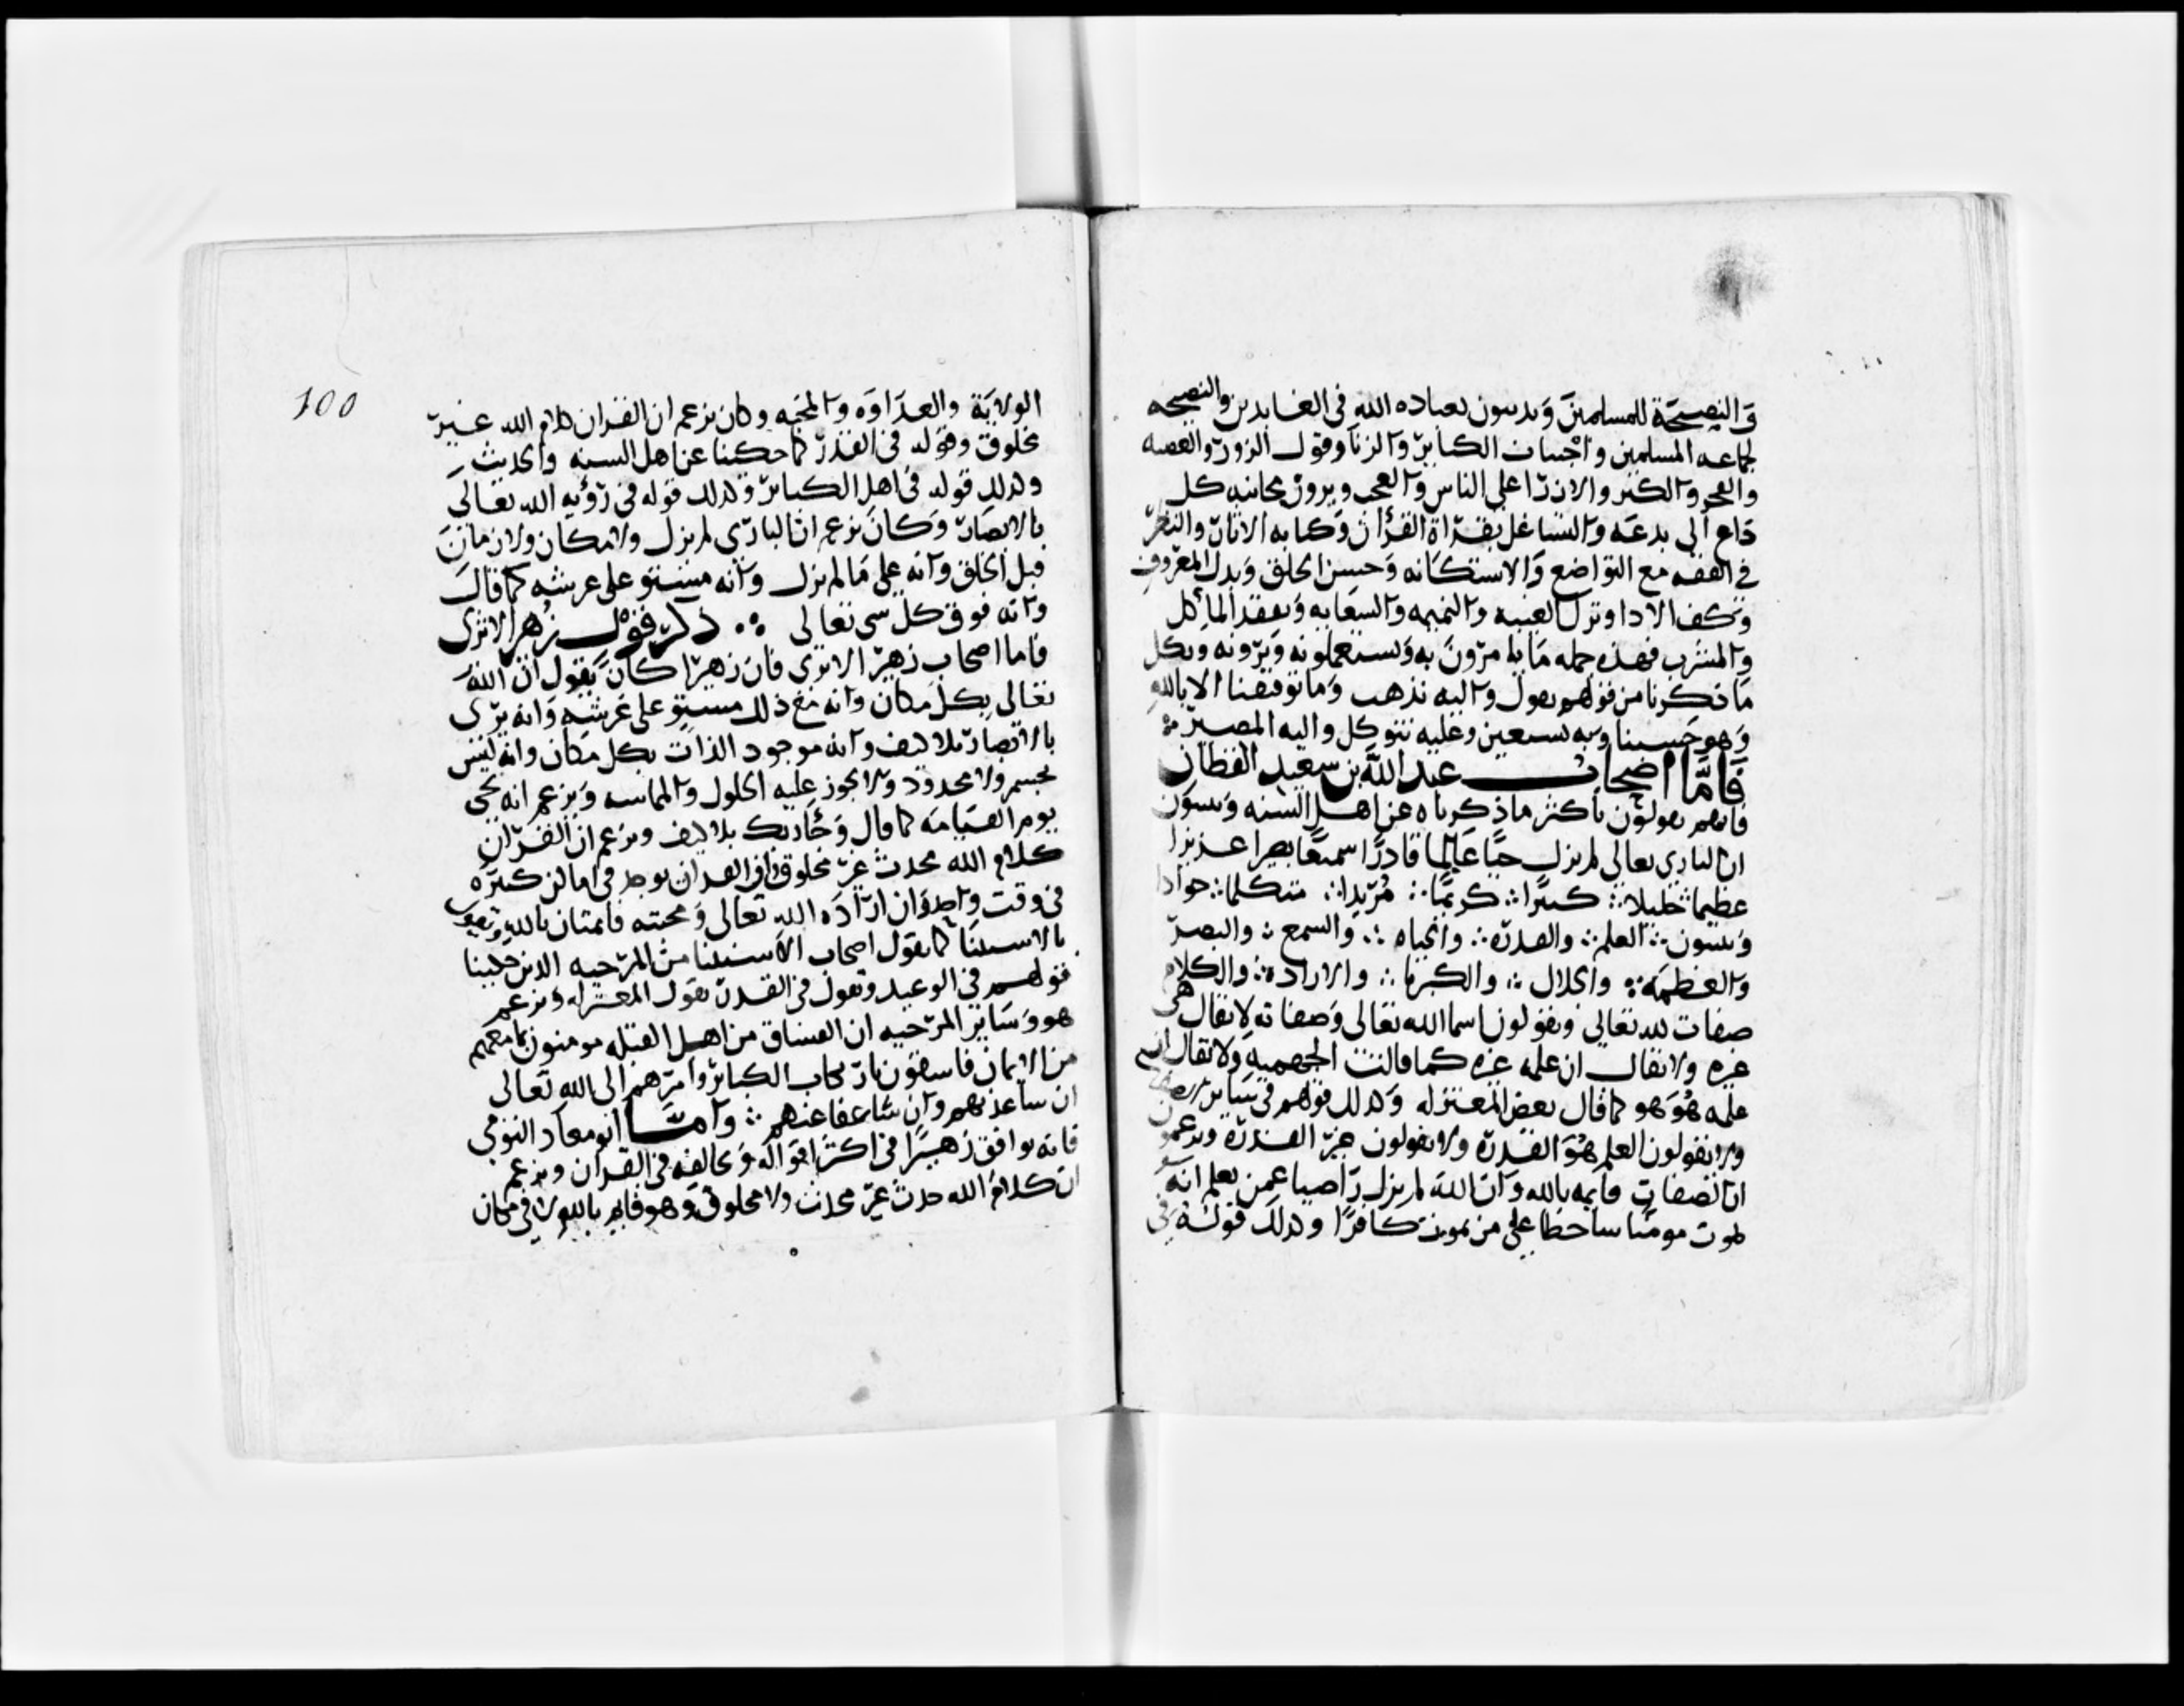 والنصيحة للمسلمين ويدينون بعباده الله في العابدين والنصيحه
لجماعه المسلمين واجتناب الكبائر والزنا وقول الزور والعصبه
والفخر والكبر والازراء على الناس والعجب ويرون مجانبه كل
داع الى بدعه والتشاغل بقراة القرآن وكتابه الاثار والنظر
في الفقه مع التواضع والاستكانه وحسن الخلق وبدل المعروف
وكف الادا وترك الغيبه والنميمه والسعايه وتفقد المأكل
والمشرب فهذه جمله ما يامرون به ويستعملونه ويرونه وبكل
ما ذكرنا من قولهم نقول واليه نذهب وما توفيقنا الا بالله
وهو حسبنا وبه نستعين وعليه نتوكل واليه المصير
فأما اصحاب عبد الله بن سعيد القطان
فانهم يقولون باكثر ما ذكرناه عن اهل السنه ويثبتون
ان البارى تعالى لم يزل حيا عالما قادرا سميعا بصيرا عزيزا
عظيما جليلا كبيرا كريما مريدا متكلما جوادا
ويثبتون العلم والقدره والحياه والسمع والبصر
والعظمه والجلال والكبريا والاراده والكلام
صفات لله تعالى ويقولون اسما الله تعالى وصفاته لا يقال هى
غيره ولا يقال ان علمه غيره كما قالت الجهميه ولا يقال ان
علمه هو هو كما قال بعض المعتزله وكذلك قولهم في سائر الصفات
ولا يقولون العلم هو القدرة ولا يقولون غير القدرة ويزعمون
ان الصفات قايمه بالله وان الله لم يزل راضيا عمن يعلم انه
يموت مومنا ساخطا على من يموت كافرا وكذلك قوله في
100
الولاية والعداوه والمحبه وكان يزعم ان القران كلام الله غير
مخلوق وقوله في القدر كما حكينا عن اهل السنه والحديث
وكذلك قوله في اهل الكبائر وكذلك قوله في رؤيه الله تعالى
بالابصار وكان يزعم ان البارى لم يزل ولا مكان ولا زمان
قبل الخلق وانه على ما لم يزل وانه مستو على عرشه كما قال
وانه فوق كل شى تعالى ذكر قول زهير الاثرى
فاما اصحاب زهير الاثرى فان زهيرا كان يقول ان الله
تعالى بكل مكان وانه مع ذلك مستو على عرشه وانه يرى
بالابصار بلا كيف وانه موجود الذات بكل مكان وانه ليس
بجسم ولا محدود ولا يجوز عليه الحلول والمماسه ويزعم انه يجى
يوم القيامه كما قال وجاء ربك بلا كيف ويزعم ان القران
كلام الله محدث غير مخلوق وان القران يوجد في اماكن كثيره
في وقت واحد وان ارادة الله تعالى ومحبته قايمتان بالله ويقول
بالاستثنا كما يقول اصحاب الاستثنا من المرجيه الذين حكينا
قولهم في الوعيد ويقول في القدر بقول المعتزله ويزعم
هو وسائر المرجيه ان الفساق من اهل القبله مومنون بما معهم
من الايمان فاسقون بارتكاب الكبائر وامرهم الى الله تعالى
ان ساعذبهم وان شا عفا عنهم وأما ابو معاد التومى
فانه يوافق زهيرا في اكثر اقواله ويخالفه في القران ويزعم
ان كلام الله حدث غير محدث ولا مخلوق وهو قايم بالله لا في مكان